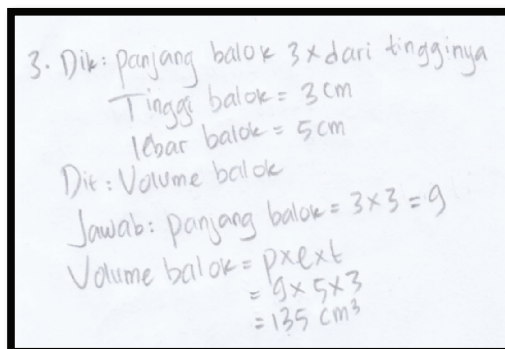 3. Dik: panjang balok 3 x dari tingginya
Tinggi balok = 3 cm
lebar balok = 5 cm
Dit: Volume balok
Jawab: panjang balok = 3 x 3 = 9
Volume balok = p x l x t
= 9 x 5 x 3
= 135 cm³